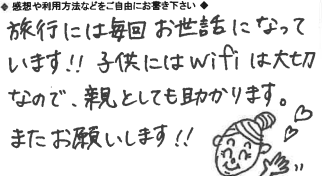 ◆ 感想や利用方法などをご自由にお書き下さい ◆
旅行には毎回お世話になって
います!! 子供にはwifiは大切
なので、親としても助かります。
またお願いします!!